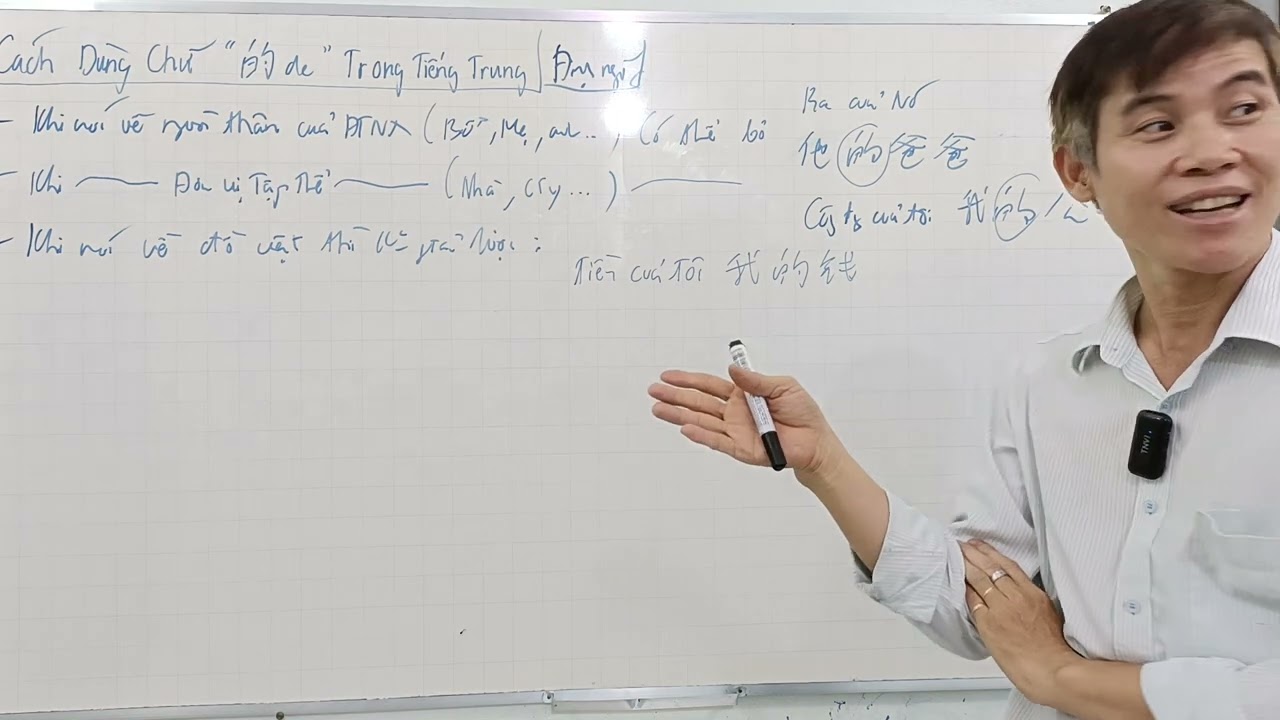 Cách Dùng Chữ "的 de" Trong Tiếng Trung | Định ngữ
- Khi nói về người thân của ĐTNX (Bố, Mẹ, anh...) Có thể bỏ
- Khi — Đơn vị Tập thể — (Nhà, Cty...) —
- Khi nói về đồ vật thì không giản lược:
Tiền của Tôi 我的钱
Ba của Nó
他的爸爸
Công ty của tôi 我的公
TNVI